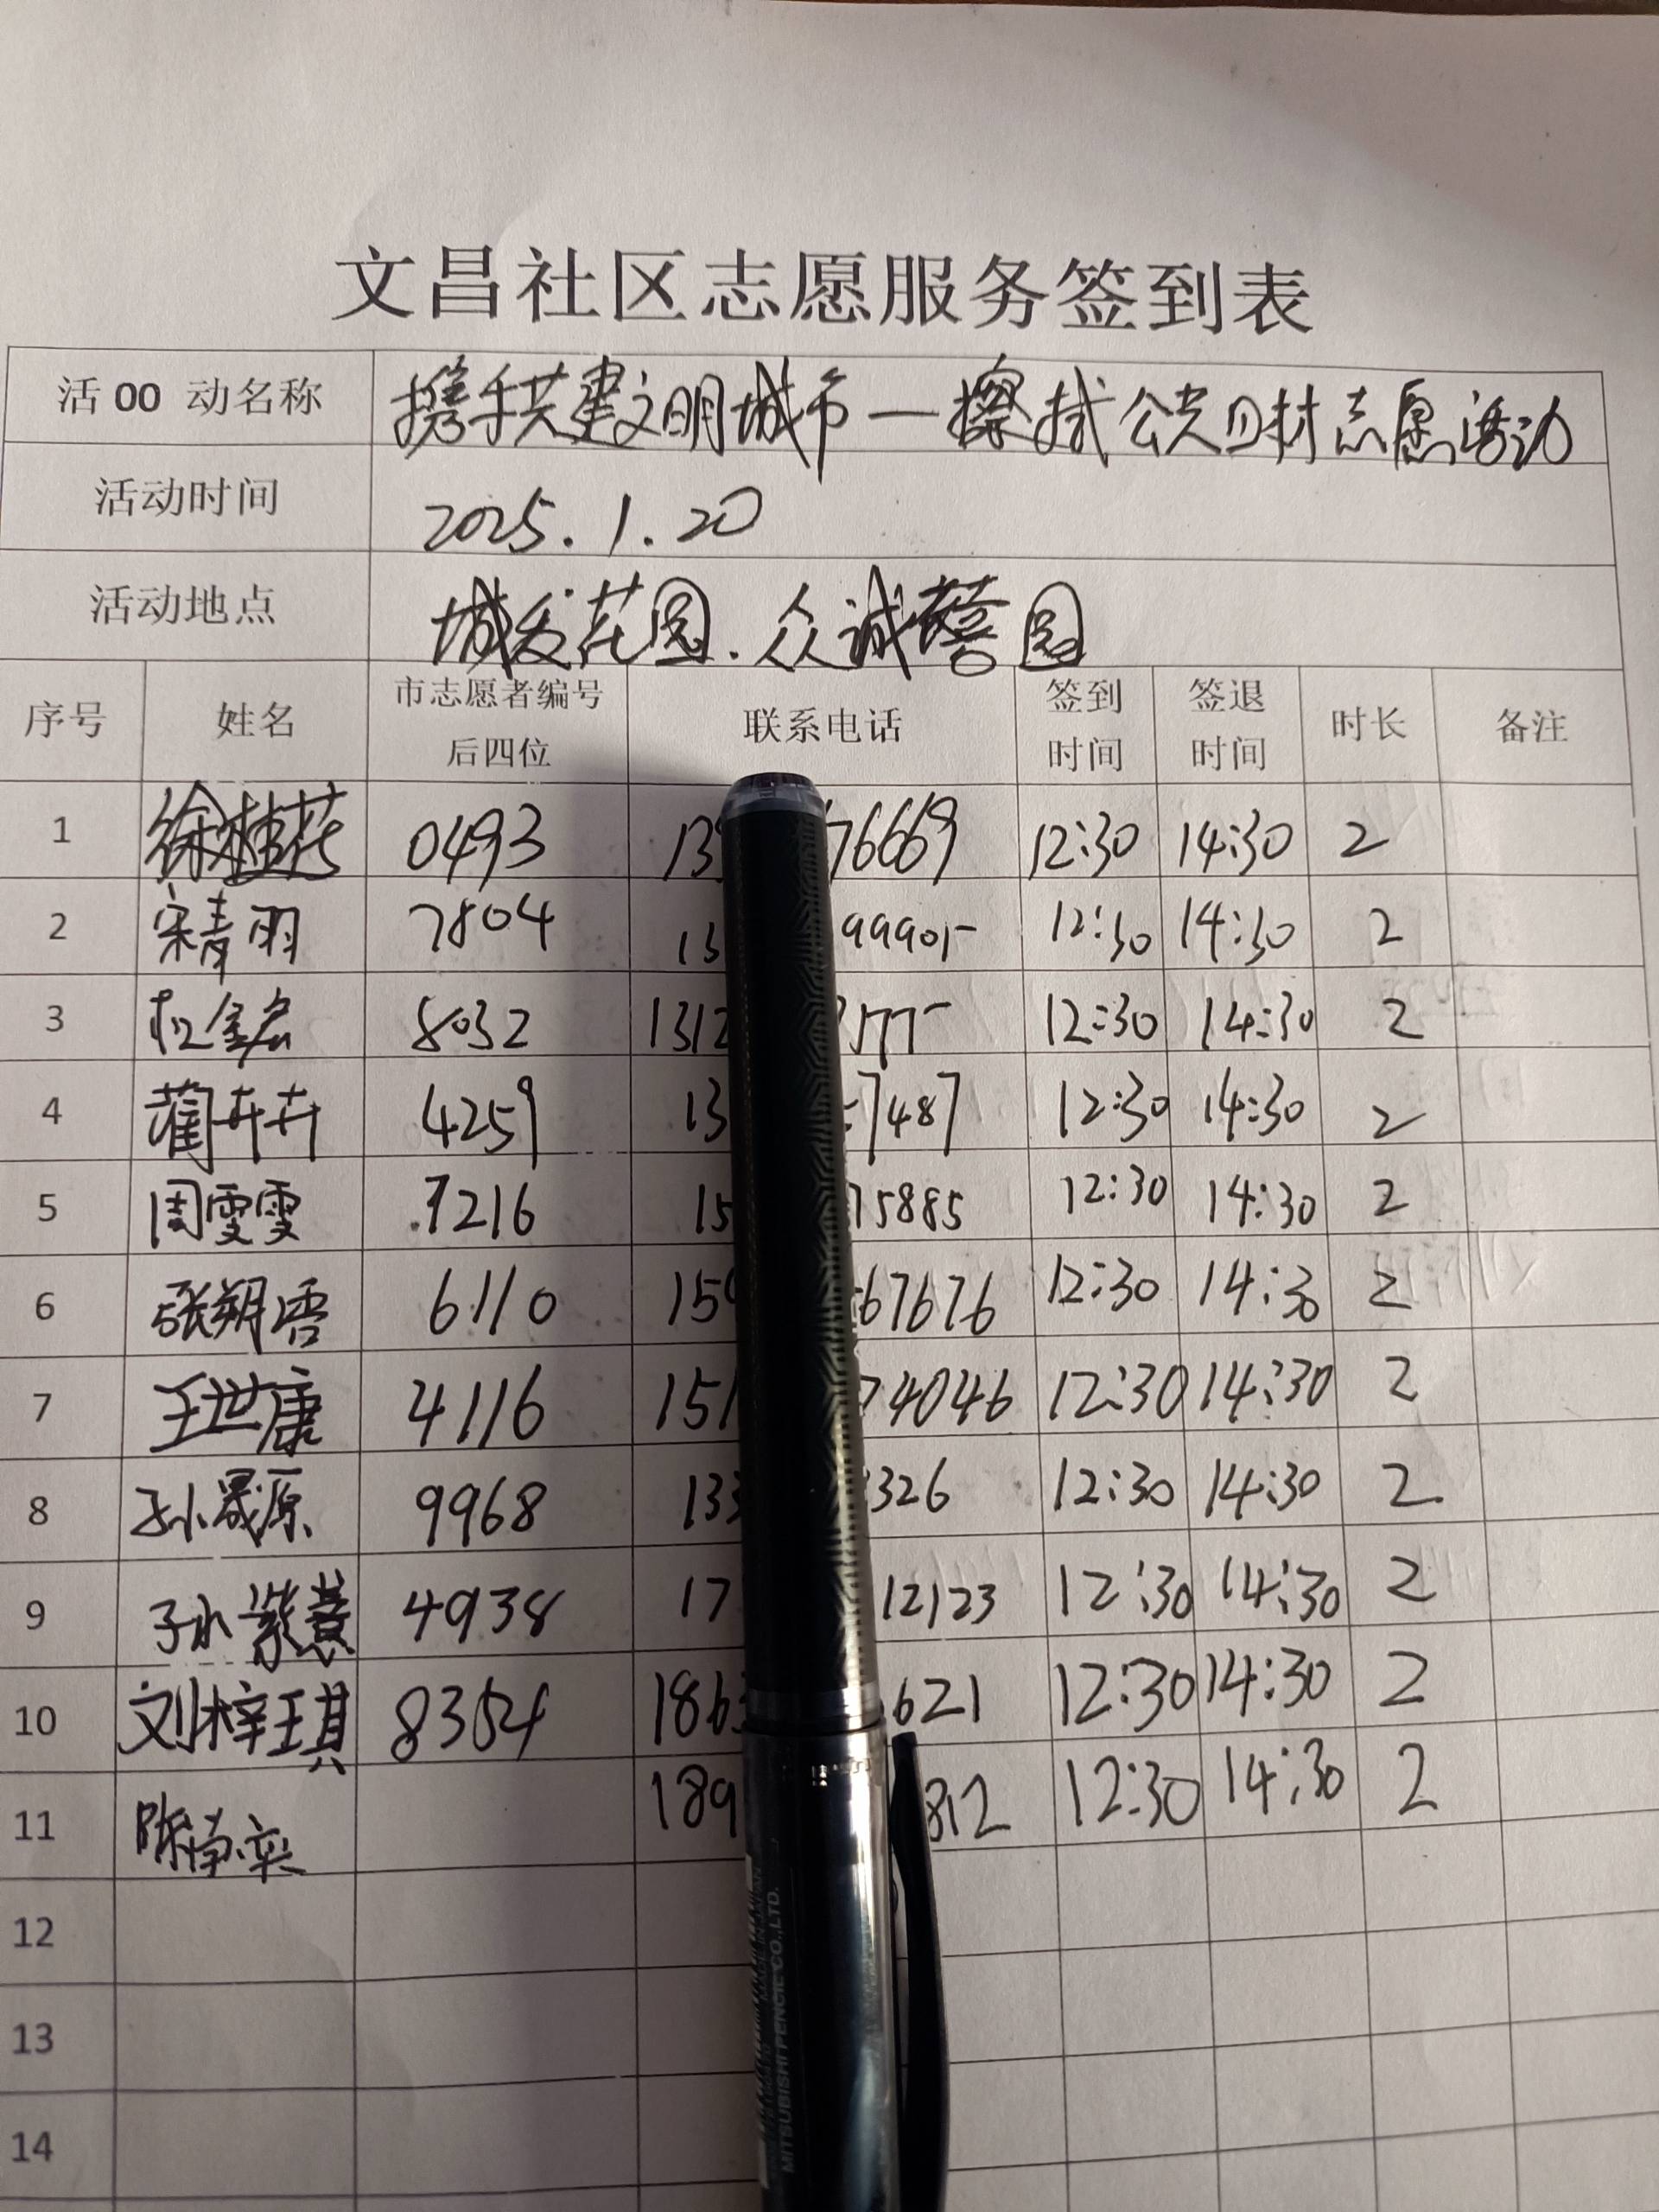 文昌社区志愿服务签到表
活 00 动名称 携手共建文明城市—擦拭公共月材志愿活动
活动时间 2025.1.20
活动地点 城发花园.众诚馨园
序号 姓名 市志愿者编号后四位 联系电话 签到时间 签退时间 时长 备注
1 徐桂花 0493 13 76669 12:30 14:30 2
2 宋青羽 7804 13 99905 12:30 14:30 2
3 8032 1312 3177 12:30 14:30 2
4 蔺卉卉 4259 13 7487 12:30 14:30 2
5 周雯雯 7216 15 15885 12:30 14:30 2
6 张朔 6110 159 67676 12:30 14:30 2
7 王世康 4116 151 74046 12:30 14:30 2
8 孙晟源 9968 133 326 12:30 14:30 2
9 孙紫薏 4938 17 12123 12:30 14:30 2
10 刘梓琪 8354 1863 621 12:30 14:30 2
11 陈 栾 189 812 12:30 14:30 2
12
13
14
MITSUBISHI PENCIL CO.,LTD.